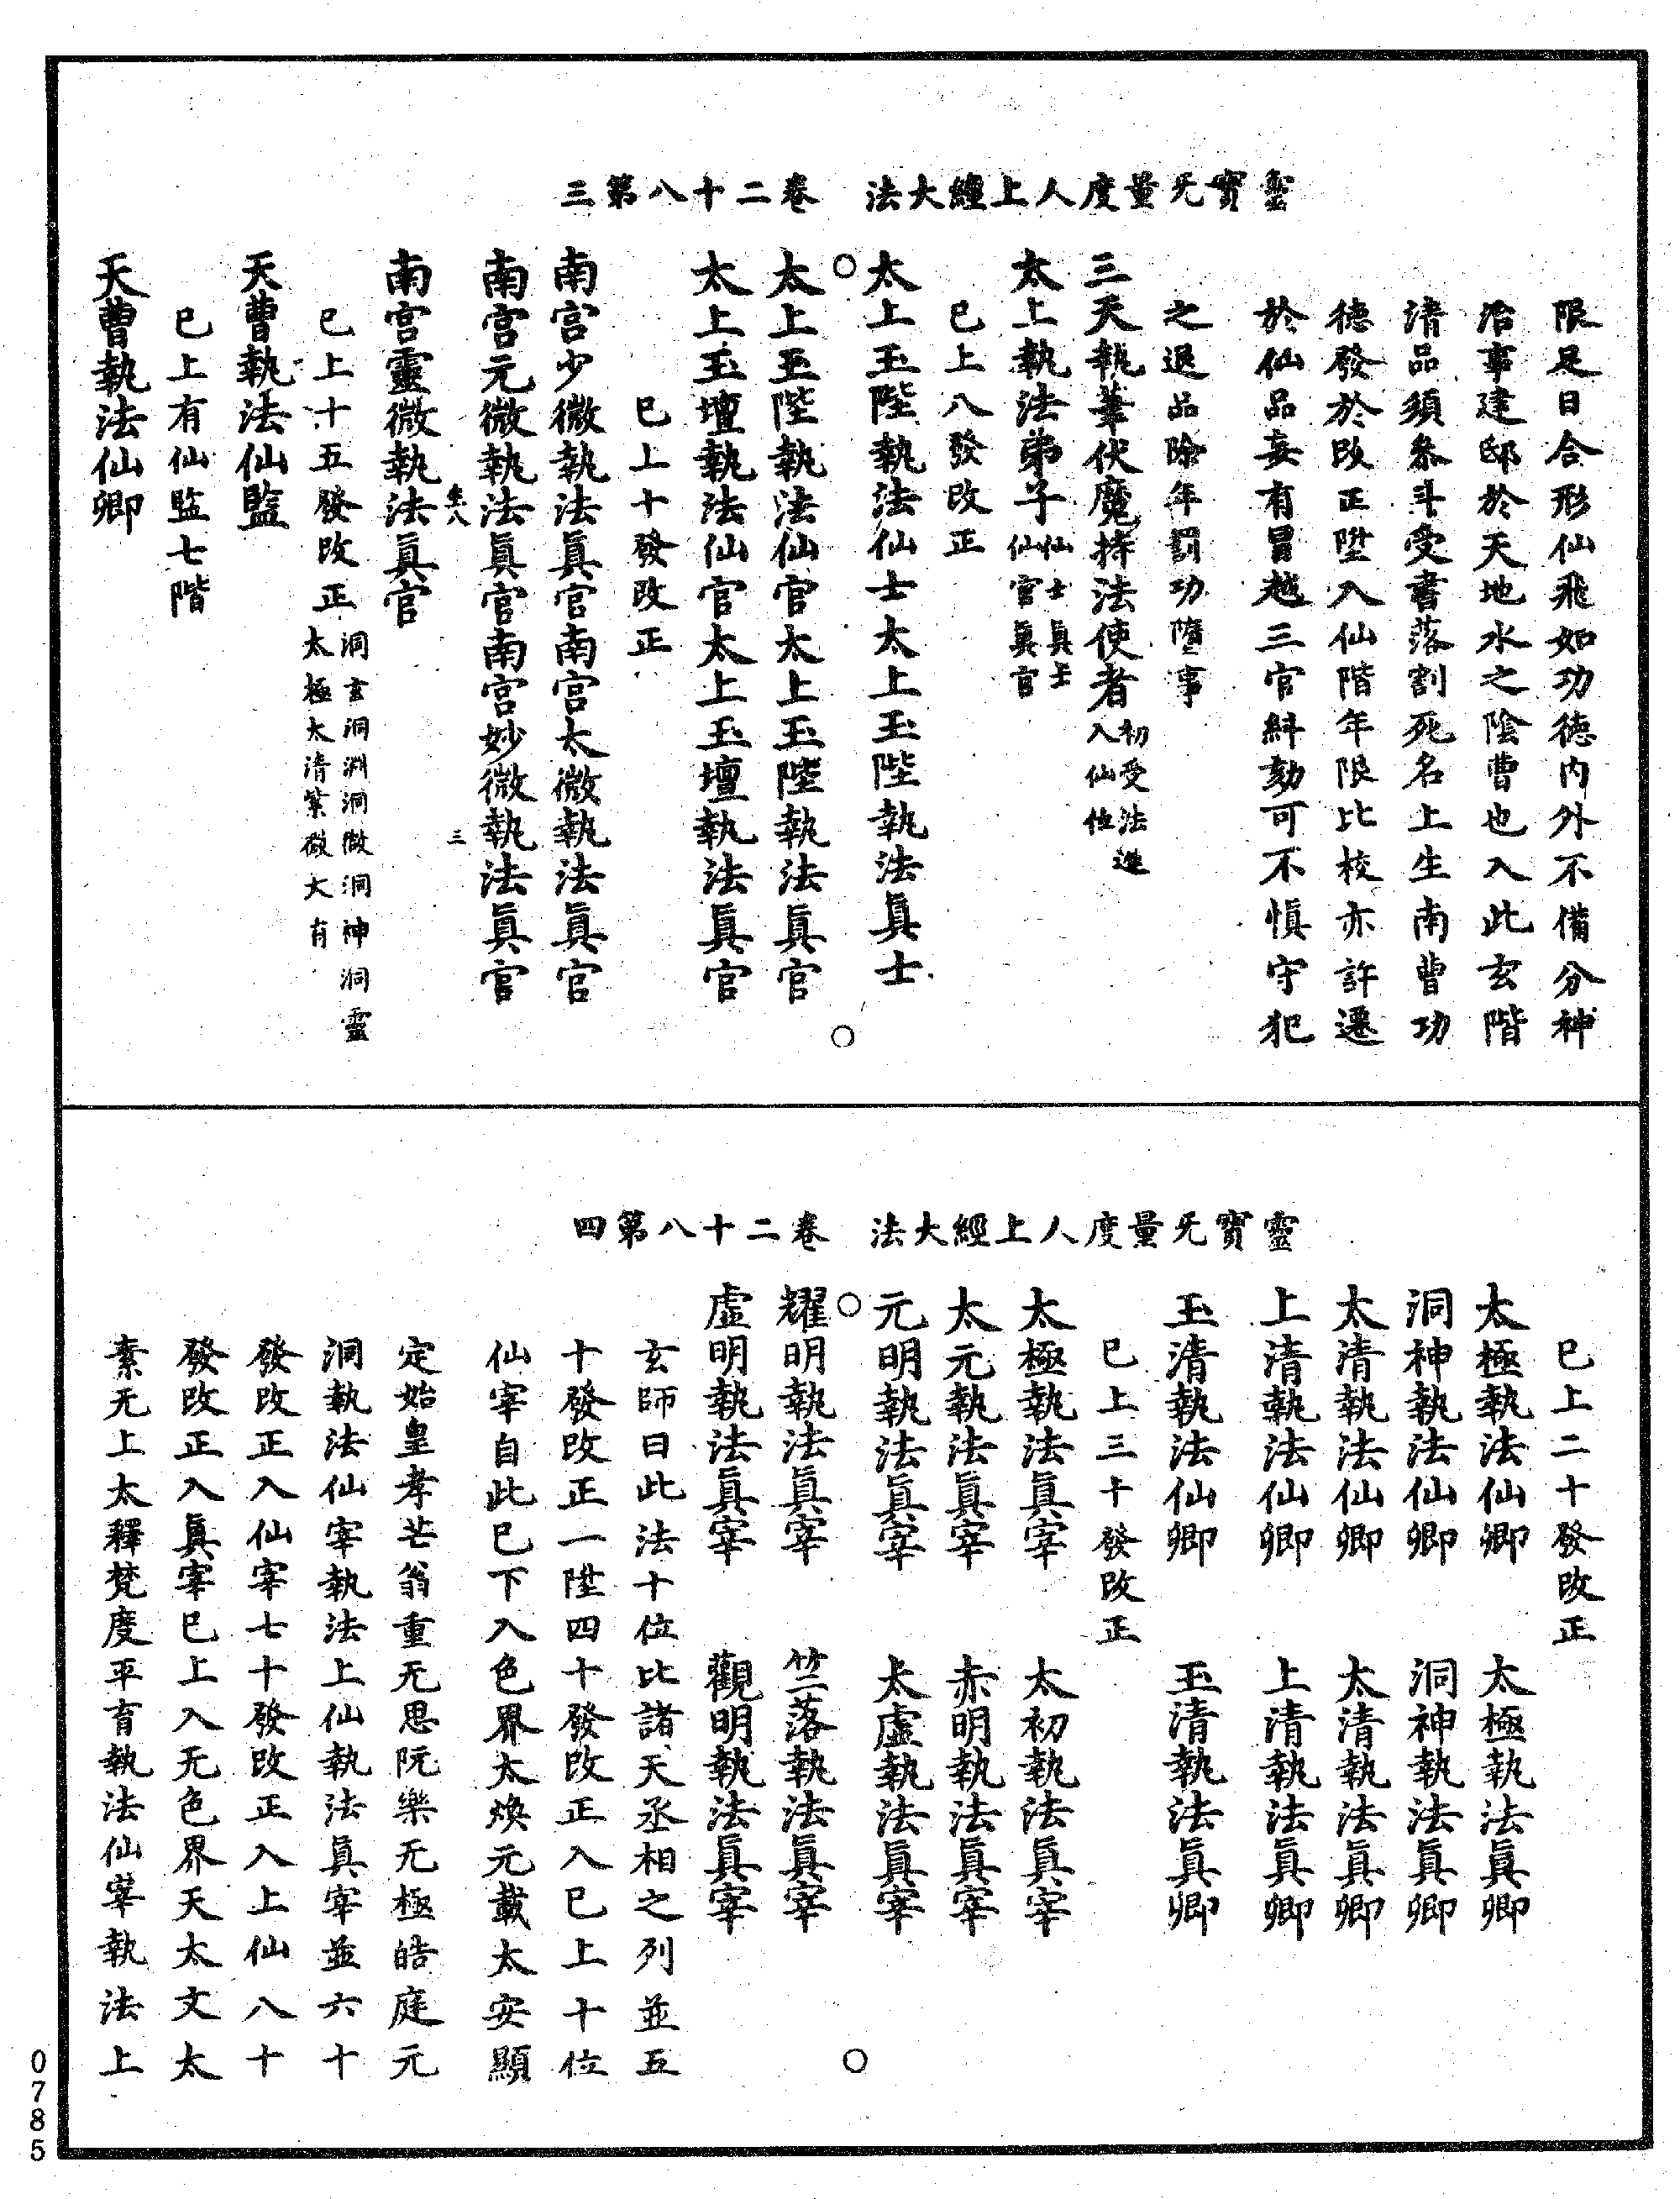 靈寶旡量度人上經大法　卷二十八第三
限足日合形仙飛如功德內外不備分神
治事建邸於天地水之陰曹也入此玄階
清品須叅斗受書落割死名上生南曹功
德發於改正陞入仙階年限比校亦許遷
於仙品妄有冒越三官糾劾可不慎守犯
之退品除年罰功墮事
三天執華伏魔持法使者初受法進入仙位
太上執法弟子仙士真士仙官真官
已上八發改正
太上玉陛執法仙士太上玉陛執法真士
太上玉陛執法仙官太上玉陛執法真官
太上玉壇執法仙官太上玉壇執法真官
已上十發改正
南宮少微執法真官南宮太微執法真官
南宮元微執法真官南宮妙微執法真官
卷八　三
南宮靈微執法真官
已上十五發改正洞玄洞淵洞微洞神洞靈太極太清紫微大有
天曹執法仙監
已上有仙監七階
天曹執法仙卿
靈寶旡量度人上經大法　卷二十八第四
已上二十發改正
太極執法仙卿　太極執法真卿
洞神執法仙卿　洞神執法真卿
太清執法仙卿　太清執法真卿
上清執法仙卿　上清執法真卿
玉清執法仙卿　玉清執法真卿
已上三十發改正
太極執法真宰　太初執法真宰
太元執法真宰　赤明執法真宰
元明執法真宰　太虛執法真宰
耀明執法真宰　竺落執法真宰
虛明執法真宰　觀明執法真宰
玄師曰此法十位比諸天丞相之列並五
十發改正一陞四十發改正入已上十位
仙宰自此已下入色界太煥元載太安顯
定始皇孝芒翁重旡思阮樂旡極皓庭元
洞執法仙宰執法上仙執法真宰並六十
發改正入仙宰七十發改正入上仙八十
發改正入真宰已上入旡色界天太文太
素旡上太釋梵度平育執法仙宰執法上
0785